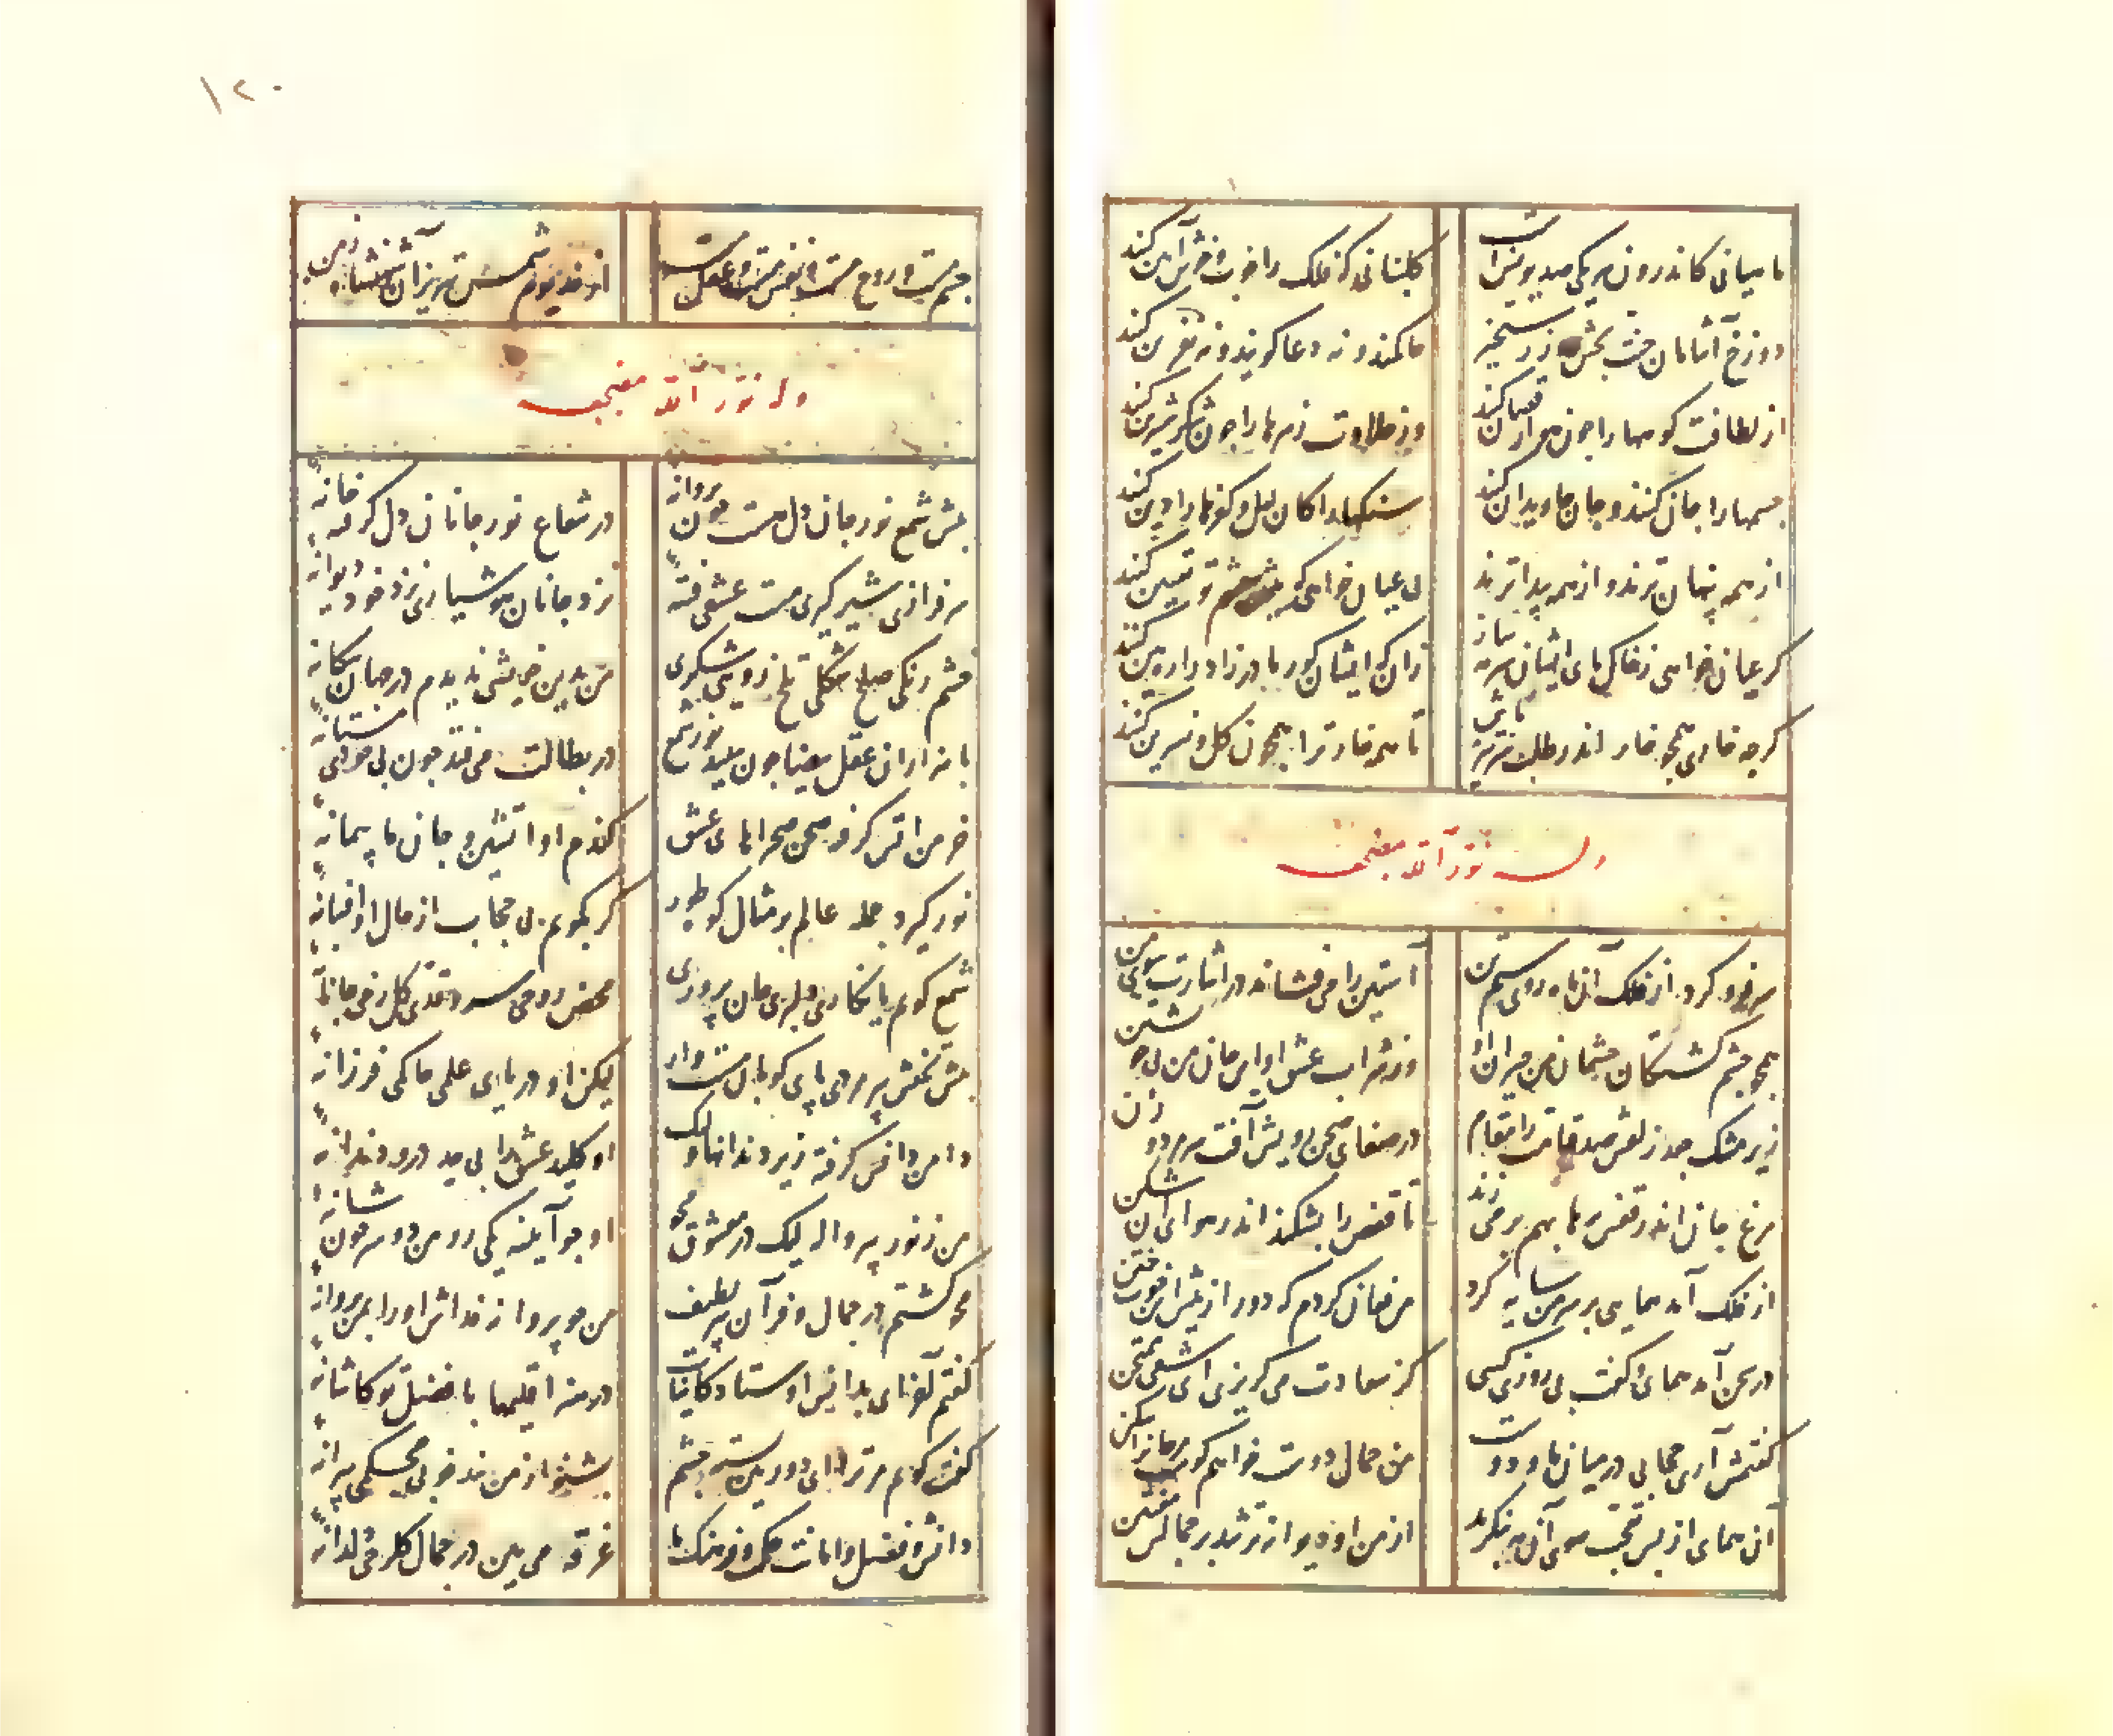 ماهیانی کاندرون هر یکی صد یونس است
گلبنانی کز فلک را خوب و خوش آیین کنند
دوزخ آشامان جنت بخش روز رستخیز
حاکمند و نه دعا گویند و نه نفرین کنند
از لطافت کوهها را چون هوا رقصان کنند
وز حلاوت زهرها را چون شکر شیرین کنند
جسمها را جان کنند و جان جاویدان کنند
سنگها را کان لعل و کفرها را دین کنند
از همه پنهان ترند و از همه پیداترند
کی عیان خواهی که پیش چشم تو تعیین کنند
گر عیان خواهی ز خاک پای ایشان سرمه ساز
زان که ایشان کور مادرزاد را ره بین کنند
گر چه خاری همچو خار اندر طلب سر تیز باش
تا همه خار ترا همچون گل و نسرین کنند
وله نور الله مضجعه
سر فرو کرد از فلک آن ماه روی سیم تن
آستین را می فشاند در اشارت سوی من
همچو چشم کشتگان چشمان من حیران او
وز شراب عشق او این جان من بی خویشتن
زیر مشک جعد زلفش صد قیامت را مقام
در صفای صحن رویش آفت مرد و زن
مرغ جان اندر قفس پرها بهم بر می زند
تا قفس را بشکند اندر هوای آن شکن
از فلک آمد همایی بر سر من سایه کرد
من فغان کردم که دور از پیش آن خوب ختن
در سخن آمد همای و گفت بی روزی کسی
کز سعادت می گریزی ای شقی ممتحن
گفتمش آری حجابی در میان ما و دوست
من جمال دوست خواهم کو مرجانراسکن
آن همای از بس تعجب سوی آن مه بنگرید
از من او دیوانه تر شد در جمالش مفتتن
۱۲۰
جسم مست و روح مست و نفس مست و عقل مست
از خداوندم شمس تبریز آن شهنشاه زمن
وله نور الله مضجعه
پیش شمع نور جان دل هست چون پروانه
در شعاع نور جانان دل گرفته خانه
سرفرازی شیرگیری مست عشقی فتنه
نزد جانان هوشیاری نزد خود دیوانه
خشم رنگی صلح شکلی تلخ رویی شکری
من بدین خویشی ندیدم در جهان بیگانه
با هزاران عقل بینا چون ببیند نور شمع
در بطالت می فتد چون بی هوای مستانه
خرمن آتش گرفته صحن صحراهای عشق
گندم او آتشین و جان ما پیمانه
نور گیرد جمله عالم بر مثال کوه طور
گر بگویم بی حجاب از حال او افسانه
شمع گویم یا نگاری دلبری جان پروری
محض روحی سرو قدی کافری جانانه
پیش تختش پیرمردی پای کوبان مست وار
لیکن او دریای علمی حاکمی فرزانه
دامن دانش گرفته زیر دندانها و لیک
او کلید عشق را بی صد در و دندانه
من ز نور پیر واله لیک در معشوق محو
او چو آیینه یکی رو من دو سر چون شانه
محو گشتم در جمال و فر آن پیر لطیف
من چو پروانه ز خدا اش او را به من پروانه
گفتم آخر ای بدانش اوستاد کاینات
در هنر اقلیمها با فضل تو کاشانه
گفت گویم مر ترا ای دوربین بسته چشم
بشنو از من پند خوبی محکمی پیرانه
دانش و فضل و امانت حکمت و فرهنگ ما
غرقه می بین در جمال گلرخی دلدانه